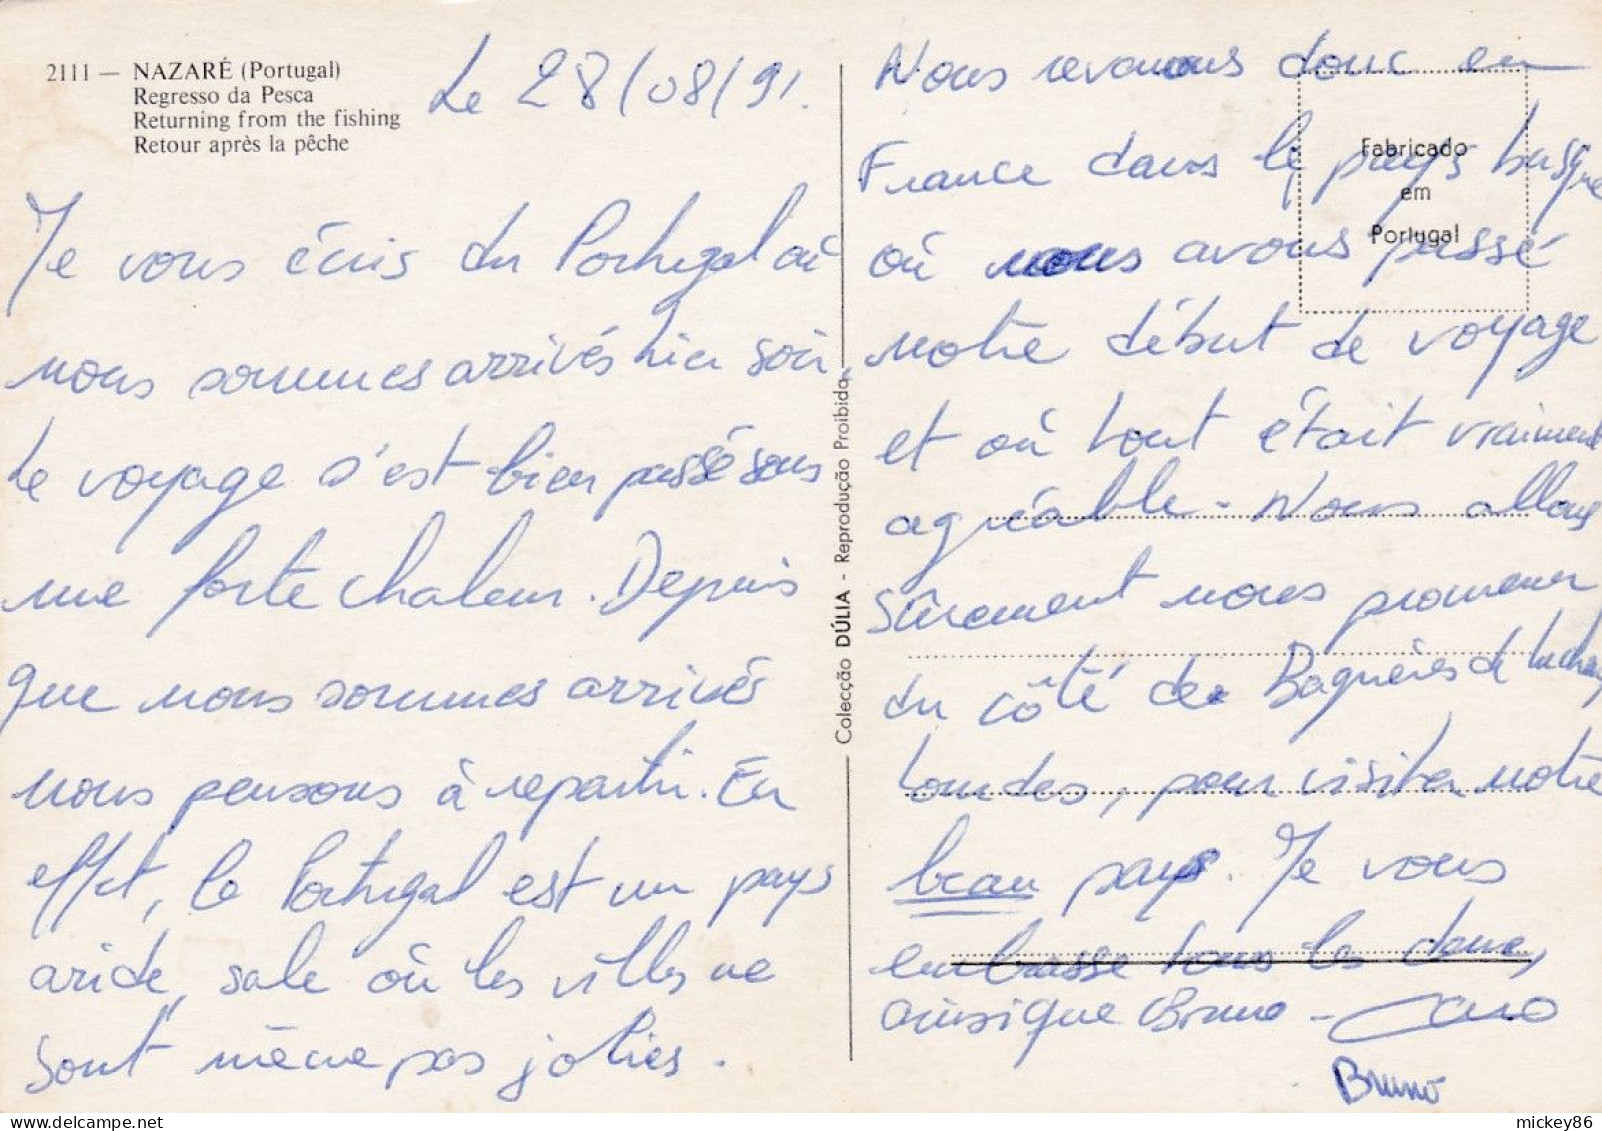 2111 — NAZARÉ (Portugal)
Regresso da Pesca
Returning from the fishing
Retour après la pêche
Le 28/08/91.
Je vous écris du Portugal où
nous sommes arrivés hier soir.
Le voyage s'est bien passé sous
une forte chaleur. Depuis
que nous sommes arrivés
nous pensons à repartir. En
effet, le Portugal est un pays
aride, sale où les villes ne
sont même pas jolies.
Colecção DÚLIA - Reprodução Proibida
Fabricado
em
Portugal
Nous revenons donc en
France dans le pays basque
où nous avons passé
notre début de voyage
et où tout était vraiment
agréable. Nous allons
sûrement nous promener
du côté de Bagnères de Luchon,
Lourdes, pour visiter notre
beau pays. Je vous
embrasse tous les deux,
ainsi que Bruno - Caro
Bruno
mickey86